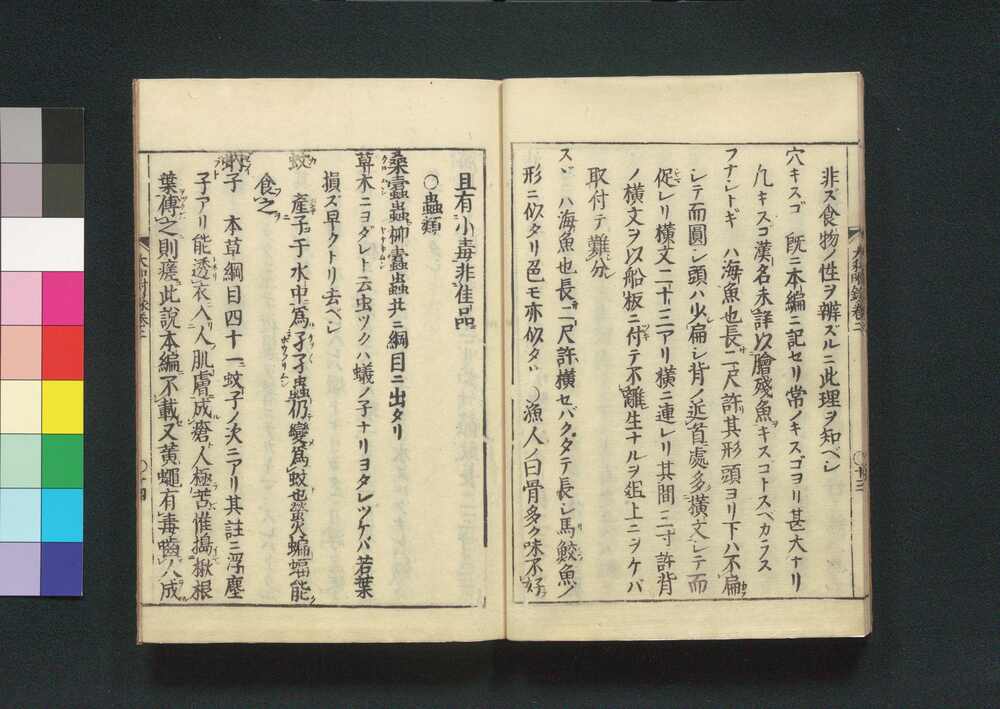 非ズ食物ノ性ヲ辨ズルニ此理ヲ知ベシ
穴キスゴ 既ニ本編ニ記セリ常ノキスゴヨリ甚大ナリ
凡キスゴ漢名未詳以膾残魚キスコトスベカラス
フナシトギ ハ海魚也長二尺許其形頭ヨリ下ハ不扁
シテ而圓シ頭ハ少扁シ背ノ近首處多横文シテ而
促レリ横文二十三アリ横ニ連レリ其間三寸許背
ノ横文ヲ以船板ニ付テ不離生ナルヲ俎上ニヲケバ
取付テ難分
ハ海魚也長二尺許横セバクタテ長シ馬鮫魚ノ
形ニ似タリ色モ亦似タリ 〇漁人ノ曰骨多ク味不好
且有小毒非佳品
〇蟲類
桑蠹蟲柳蠹蟲共ニ綱目ニ出タリ
草木ニヨダレト云虫ツクハ蟻ノ子ナリヨタレツケバ若葉
損ズ早クトリ去ベシ
蚊 産子于水中為孑孑蟲仍變為蚊也螢火蝙蝠能
食之
蚋子 本草綱目四十一蚊子ノ次ニアリ其註ニ浮塵
子アリ能透衣入人肌膚成瘡人極苦惟搗楸根
葉傅之則瘥此說本編不載又黄蠅有毒嚙人成